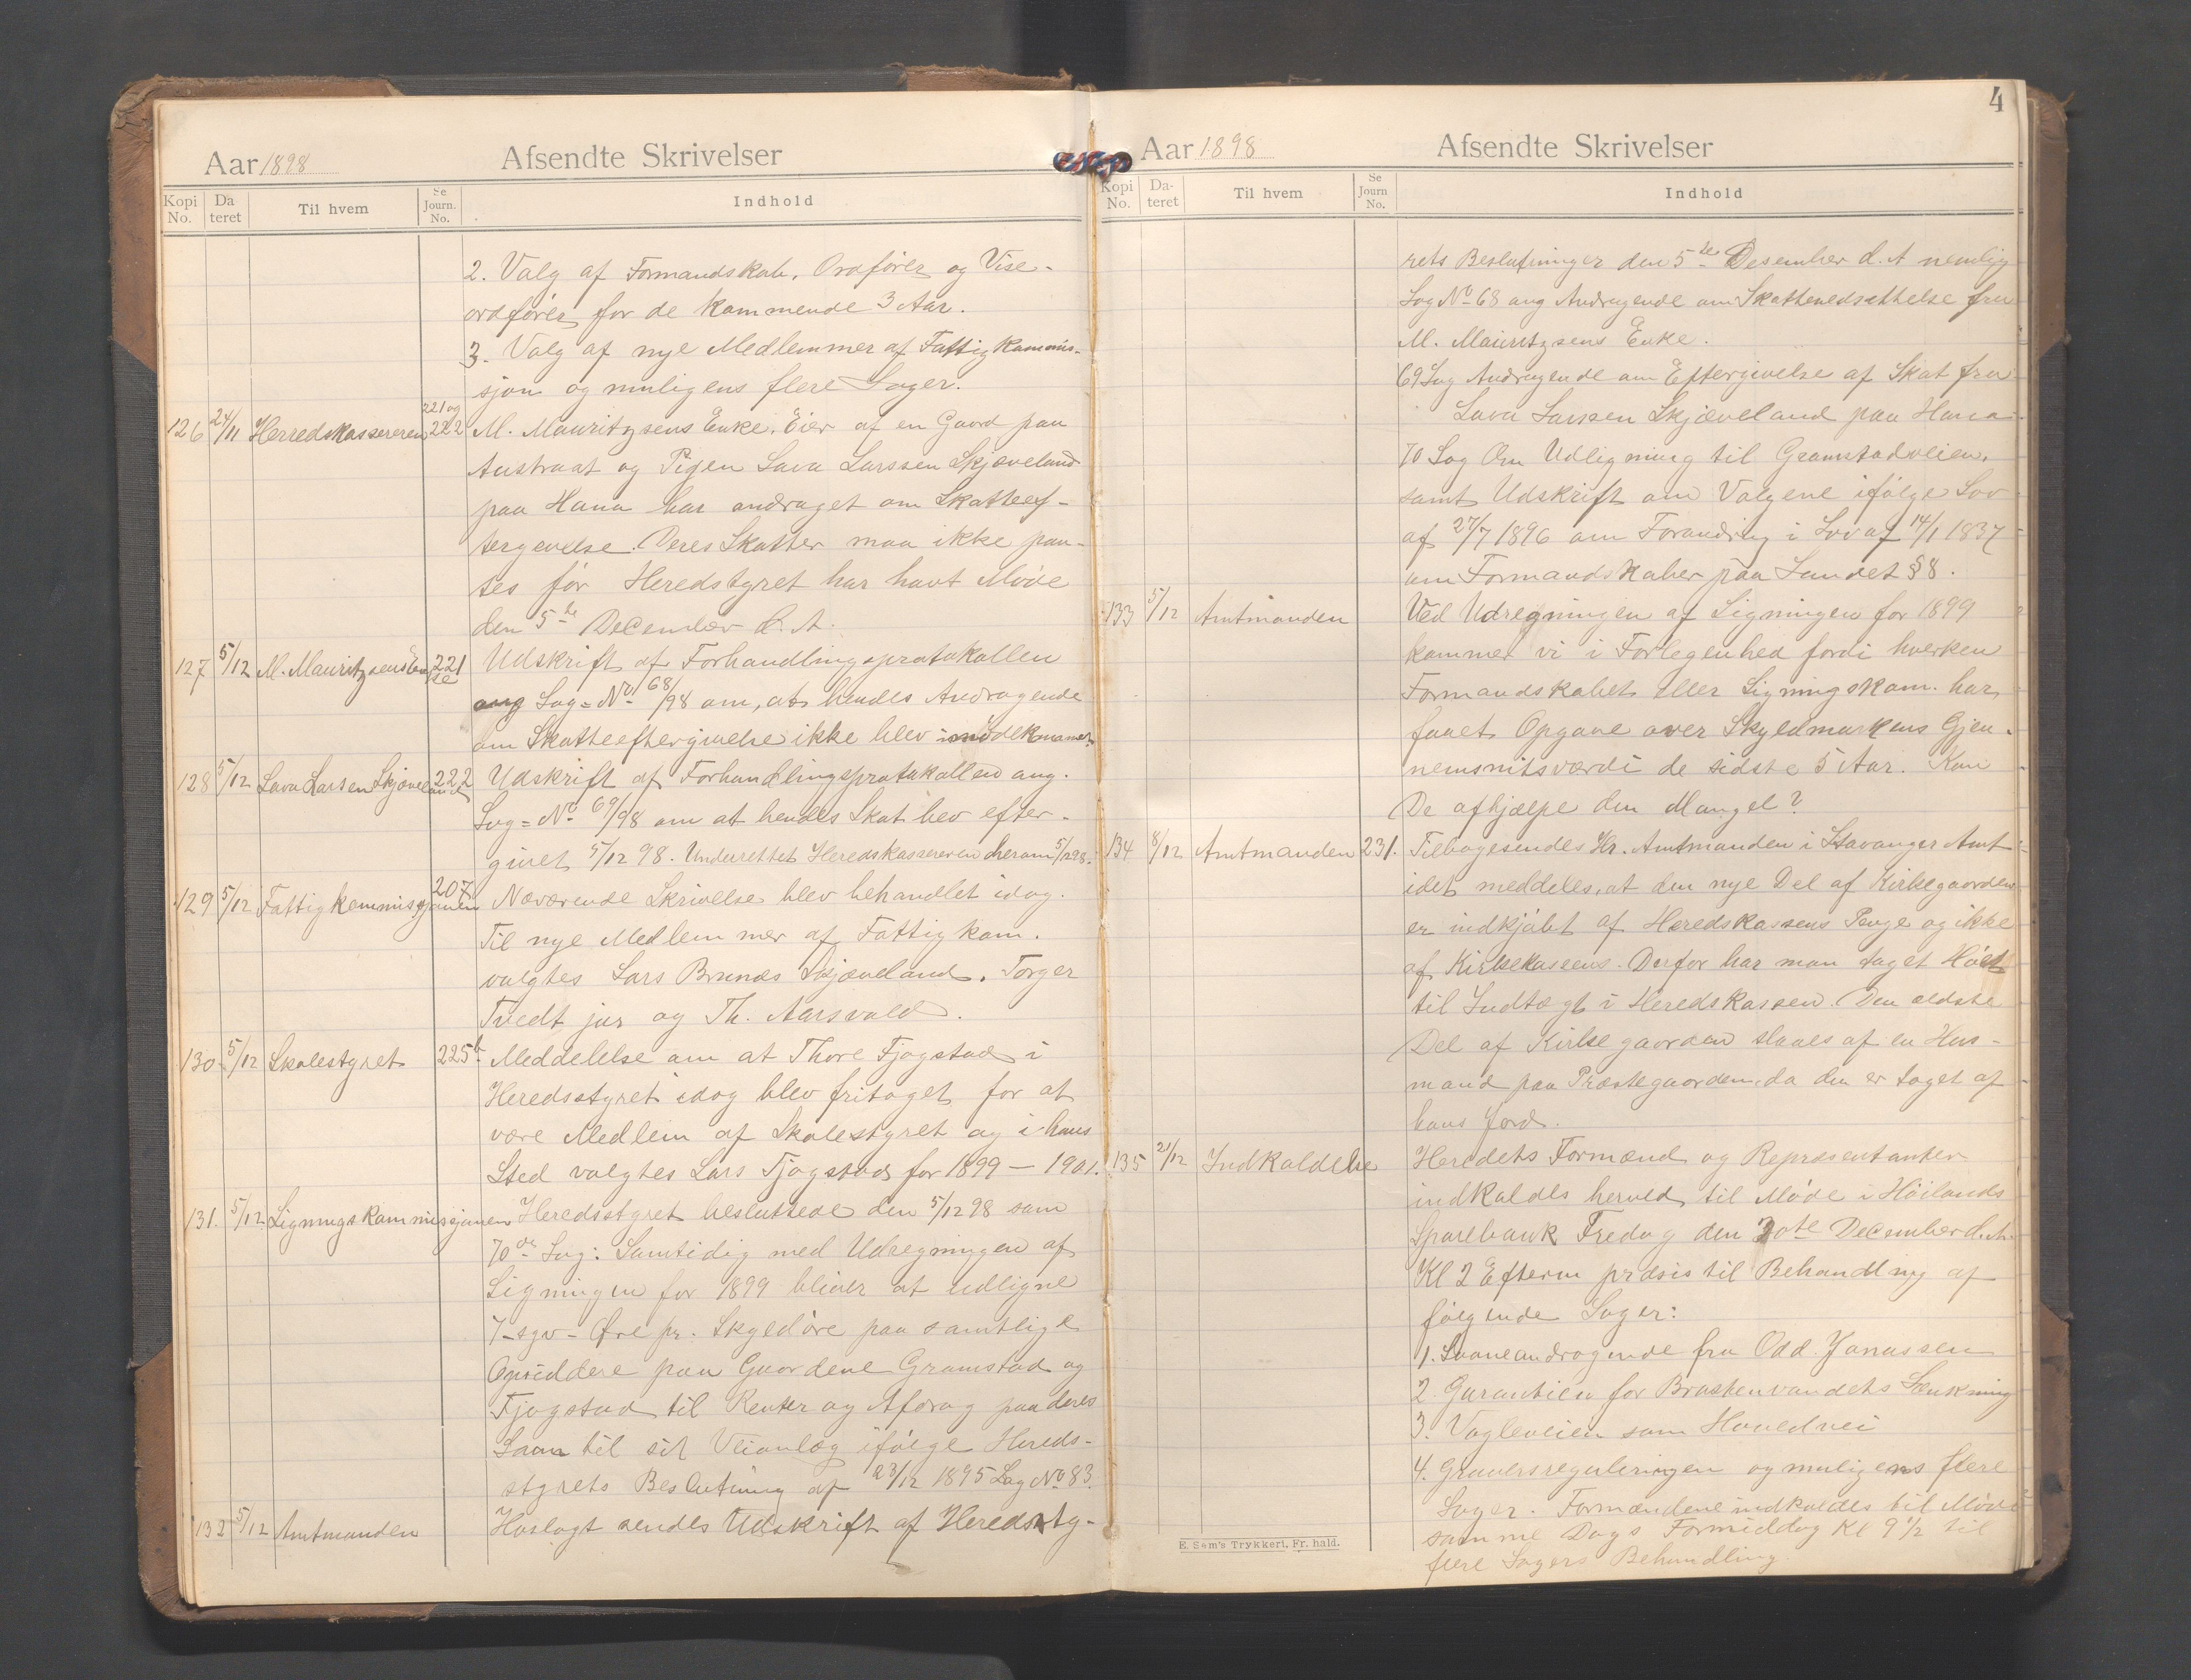 Aar 1898 Afsendte Skrivelser
Kopi No. Da teret Til hvem Se Journ. No. Indhold
2. Valg af Formandskab. Ordfører og Vise-
ordfører for de kommende 3 Aar.
3. Valg af nye Medlemmer af Fattigkommis-
sjon og muligens flere Sager.
126 24/11 Herredskassereren 221 og 222 M. Mauritzsens Enke. Eier af en Gaard paa
Austraat og Pigen Lava Larssen Skjæveland
paa Hana har andraget om Skatteef-
tergevelse. Deres Skatter maa ikke pan-
tes før Heredstyret har havt Møde
den 5te December d. A.
127 5/12 M. Mauritzsens Enke 221 Udskrift af Forhandlingsprotokollen
ang Sag=No 68/98 om, at hendes Andragende
om Skatteeftergivelse ikke blev imødekommet.
128 5/12 Lava Larsen Skjæveland 222 Udskrift af Forhandlingsprotokollen ang.
Sag=No 69/98 om at hendes Skat blev efter-
givet 5/12 98. Underrettet Heredskassereren herom 5/12 98.
129 5/12 Fattigkommisjonen 207 Nærværende Skrivelse blev behandlet idag.
Til nye Medlemmer af Fattigkom.
valgtes Lars Brunæs Skjæveland. Torger
Tvedt jur og Th. Aarsvold.
130 5/12 Skolestyret 225b Meddelelse om at Thore Fjogstad i
Heredsstyret idag blev fritaget for at
være Medlem af Skolestyret og i hans
Sted valgtes Lars Fjogstad for 1899 – 1901.
131. 5/12 Ligningskommissjonen Heredsstyret besluttede den 5/12 98 som
70de Sag: Samtidig med Udregningen af
Ligningen for 1899 bliver at udligne
7-syv- Øre pr. Skyldøre paa samtlige
Opsiddere paa Gaardene Gramstad og
Fjogstad til Renter og Afdrag paa deres
Laan til sit Veianlæg ifølge Hereds-
styrets Beslutning af 23/12 1895 Sag No 83.
132 5/12 Amtmanden Hoslagt sendes Udskrift af Heredsty-
4
Aar 1898 Afsendte Skrivelser
Kopi No. Da- teret Til hvem Se Journ No. Indhold
rets Beslutninger den 5te Desember d. A nemlig
Sag No 68 ang Andragende om Skattenedsettelse fra
M. Mauritzsens Enke.
69 Sag Andragende om Eftergivelse af Skat fra
Lava Larssen Skjæveland paa Hana
70 Sag Om Udligning til Gramstadveien.
samt Udskrift om Valgene ifølge Lov
af 27/7 1896 om Forandring i Lov af 14/1 1837
om Formandskaber paa Landet §8.
133 5/12 Amtmanden Ved Udregningen af Ligningen for 1899
kommer vi i Forlegenhed fordi hverken
Formandskabet eller Ligningskom. har
faaet Opgave over Skyldmarkens Gjen-
nemsnitsværdi de sidste 5 Aar. Kan
De afhjælpe den Mangel?
134 8/12 Amtmanden 231. Tilbagesendes Hr. Amtmanden i Stavanger Amt
idet meddeles, at den nye Del af Kirkegaarden
er indkjøbt af Heredskassens Penge og ikke
af Kirkekassens. Derfor har man taget Høet
til Indtægt i Heredskassen. Den ældste
Del af Kirkegaarden slaaes af en Hus-
mand paa Præstegaarden, da den er taget af
hans Jord.
135 21/12 Indkaldelse Heredets Formænd og Repræsentanter
indkaldes herved til Møde i Høilands
Sparebank Fredag den 30te December d. A.
Kl 2 Efterm præsis til Behandling af
følgende Sager:
1. Laaneandragende fra Odd. Jonassen
2. Garantien for Brustenvandets Sænkning
3. Vagleveien som Hovedvei
4. Graversreguleringen og muligens flere
Sager. Formændene indkaldes til Møde
samme Dags Formiddag Kl 9 1/2 til
flere Sagers Behandling.
E. Sem's Trykkeri, Fr. hald.